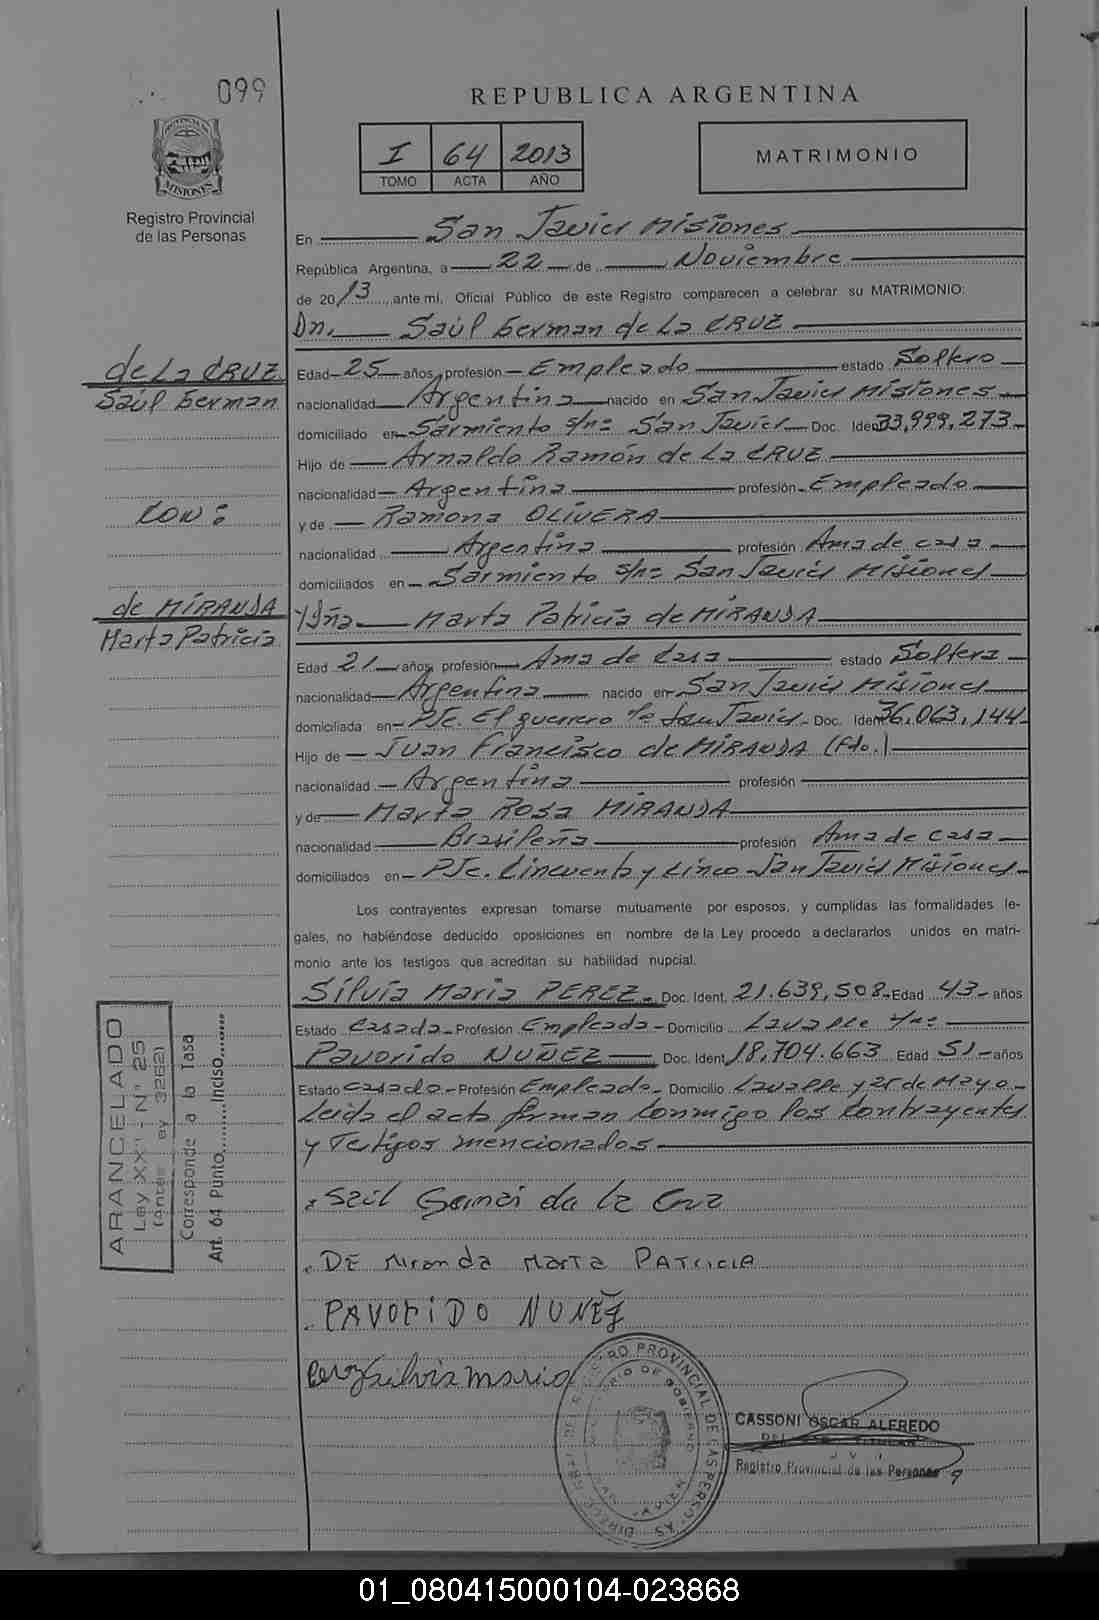 099
REPUBLICA ARGENTINA
PROVINCIA DE MISIONES
Registro Provincial
de las Personas
I 64 2013
TOMO ACTA AÑO
MATRIMONIO
En San Javier Misiones
República Argentina, a 22 de Noviembre
de 2013 ante mi, Oficial Público de este Registro comparecen a celebrar su MATRIMONIO:
Dn. Saúl German de La CRUZ
de La CRUZ
Saúl German
Edad 25 años, profesión Empleado estado Soltero
nacionalidad Argentina nacido en San Javier Misiones
domiciliado en Sarmiento s/nº San Javier Doc. Ident 33.999.273
Hijo de Arnaldo Ramón de La CRUZ
nacionalidad Argentina profesión Empleado
CON:
y de Ramona OLIVERA
nacionalidad Argentina profesión Ama de casa
domiciliados en Sarmiento s/nº San Javier Misiones
de MIRANDA
Marta Patricia
Y Dña Marta Patricia de MIRANDA
Edad 21 años, profesión Ama de Casa estado Soltera
nacionalidad Argentina nacido en San Javier Misiones
domiciliada en PJe. El guerrero San Javier Doc. Ident 36.063.144
Hijo de Juan Francisco de MIRANDA (fdo.)
nacionalidad Argentina profesión
y de Marta Rosa MIRANDA
nacionalidad Brasileña profesión Ama de casa
domiciliados en PJe. Cincuenta y Cinco San Javier Misiones
Los contrayentes expresan tomarse mutuamente por esposos, y cumplidas las formalidades le-
gales, no habiéndose deducido oposiciones en nombre de la Ley procedo a declararlos unidos en matri-
monio ante los testigos que acreditan su habilidad nupcial.
Silvia Maria PEREZ Doc. Ident. 21.639.508 Edad 43 años
Estado Casada Profesión Empleada Domicilio Lavalle s/nº
Pavorido NUÑEZ Doc. Ident 18.704.663 Edad 51 años
Estado casado Profesión Empleado Domicilio Lavalle y 25 de Mayo
Leida el acta firman Conmigo los Contrayentes
y Testigos mencionados
ARANCELADO
Ley XXII - Nº 25
(antes ley 3262)
Corresponde a la Tasa
Art. 64 Punto........Inciso........
Saúl German de la Cruz
DE Miranda Marta PATRICIA
PAVORIDO NUÑEZ
Perez Silvia Maria
REGISTRO PROVINCIAL DE LAS PERSONAS
MINISTERIO DE GOBIERNO
CASSONI OSCAR ALFREDO
Registro Provincial de las Personas
01_080415000104-023868